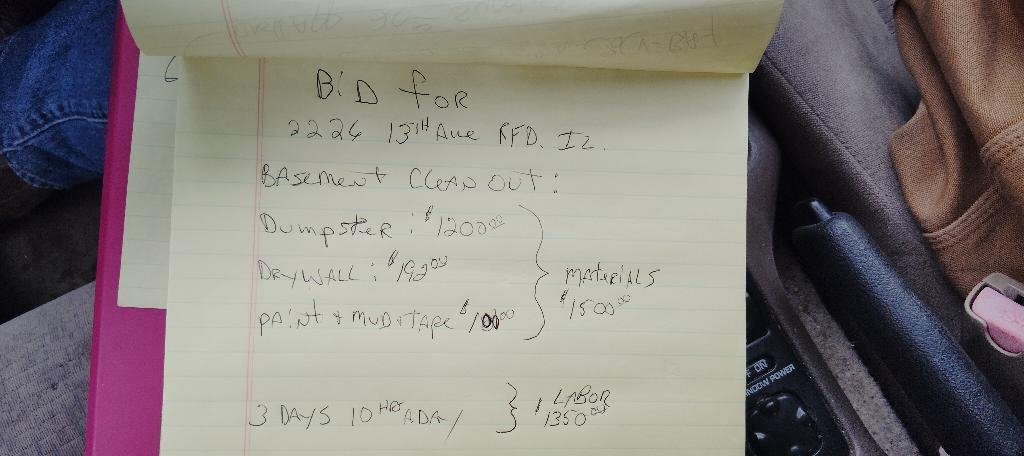 BID FOR
2226 13TH Ave RFD. IL.
BASEMENT CLEAN OUT:
DUMPSTER: $1200.00
DRYWALL: $192.00
MATERIALS
$1500.00
PAINT + MUD + TAPE $100.00
3 DAYS 10 HRS A DAY
LABOR
$1350.00
ON
WINDOW POWER